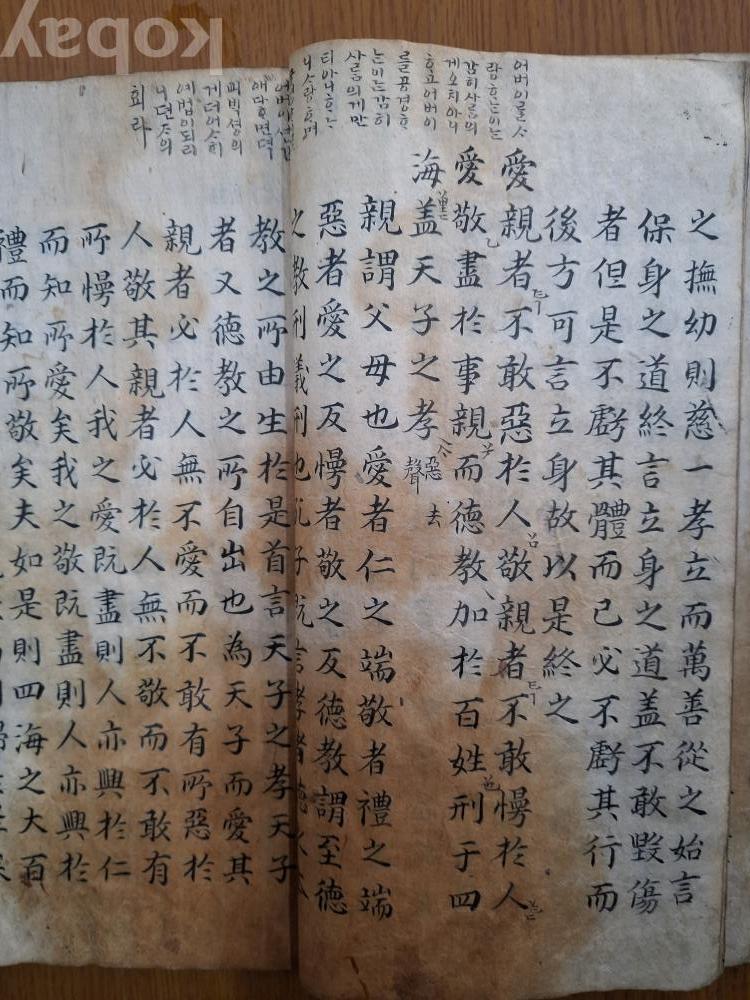 어버이를ᄉᆞ
랑ᄒᆞᄂᆞᆫ이ᄂᆞᆫ
감히사ᄅᆞᆷ의
게오치아니
ᄒᆞ고어버이
를공경ᄒᆞ
ᄂᆞᆫ이ᄂᆞᆫ감히
사ᄅᆞᆷ의게만
티아니ᄒᆞᄂᆞ
니ᄉᆞ랑ᄒᆞ며
애다ᄒᆞ면덕
피빅셩의
게더어ᄉᆞ히
예법이되리
니텬ᄌᆞ의
회라
之撫幼則慈一孝立而萬善從之始言
保身之道終言立身之道盖不敢毀傷
者但是不虧其體而已必不虧其行而
後方可言立身故以是終之
愛親者不敢惡於人敬親者不敢慢於人
愛敬盡於事親而德教加於百姓刑于四
海盖天子之孝 惡去聲
親謂父母也愛者仁之端敬者禮之端
惡者愛之反慢者敬之反德教謂至德
之教刑儀刑也子旣言孝者德
教之所由生於是首言天子之孝天子
者又德教之所自出也為天子而愛其
親者必於人無不愛而不敢有所惡於
人敬其親者必於人無不敬而不敢有
所慢於人我之愛旣盡則人亦興於仁
而知所愛矣我之敬旣盡則人亦興於
禮而知所敬矣夫如是則四海之大百
kobay